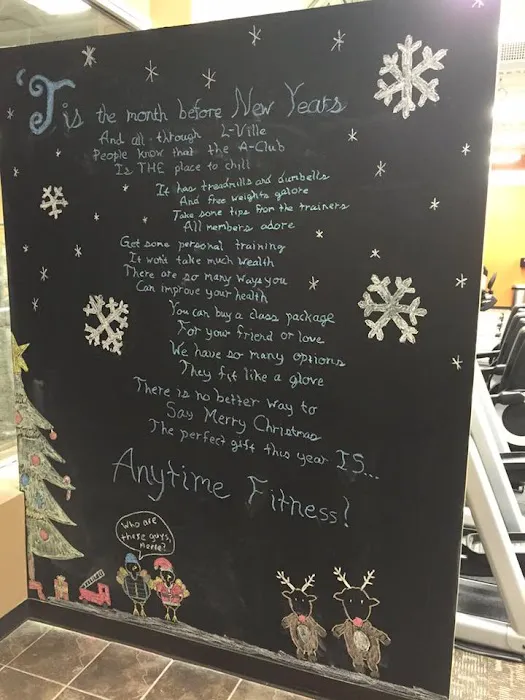 'Tis the month before New Years
And all through L-Ville
People know that the A-Club
Is THE place to chill
It has treadmills and dumbells
And free weights galore
Take some tips from the trainers
All members adore
Get some personal training
It wont take much wealth
There are so many ways you
Can improve your health
You can buy a class package
For your friend or love
We have so many options
They fit like a glove
There is no better way to
Say Merry Christmas
The perfect gift this year IS...
Anytime Fitness!
Who are
these guys,